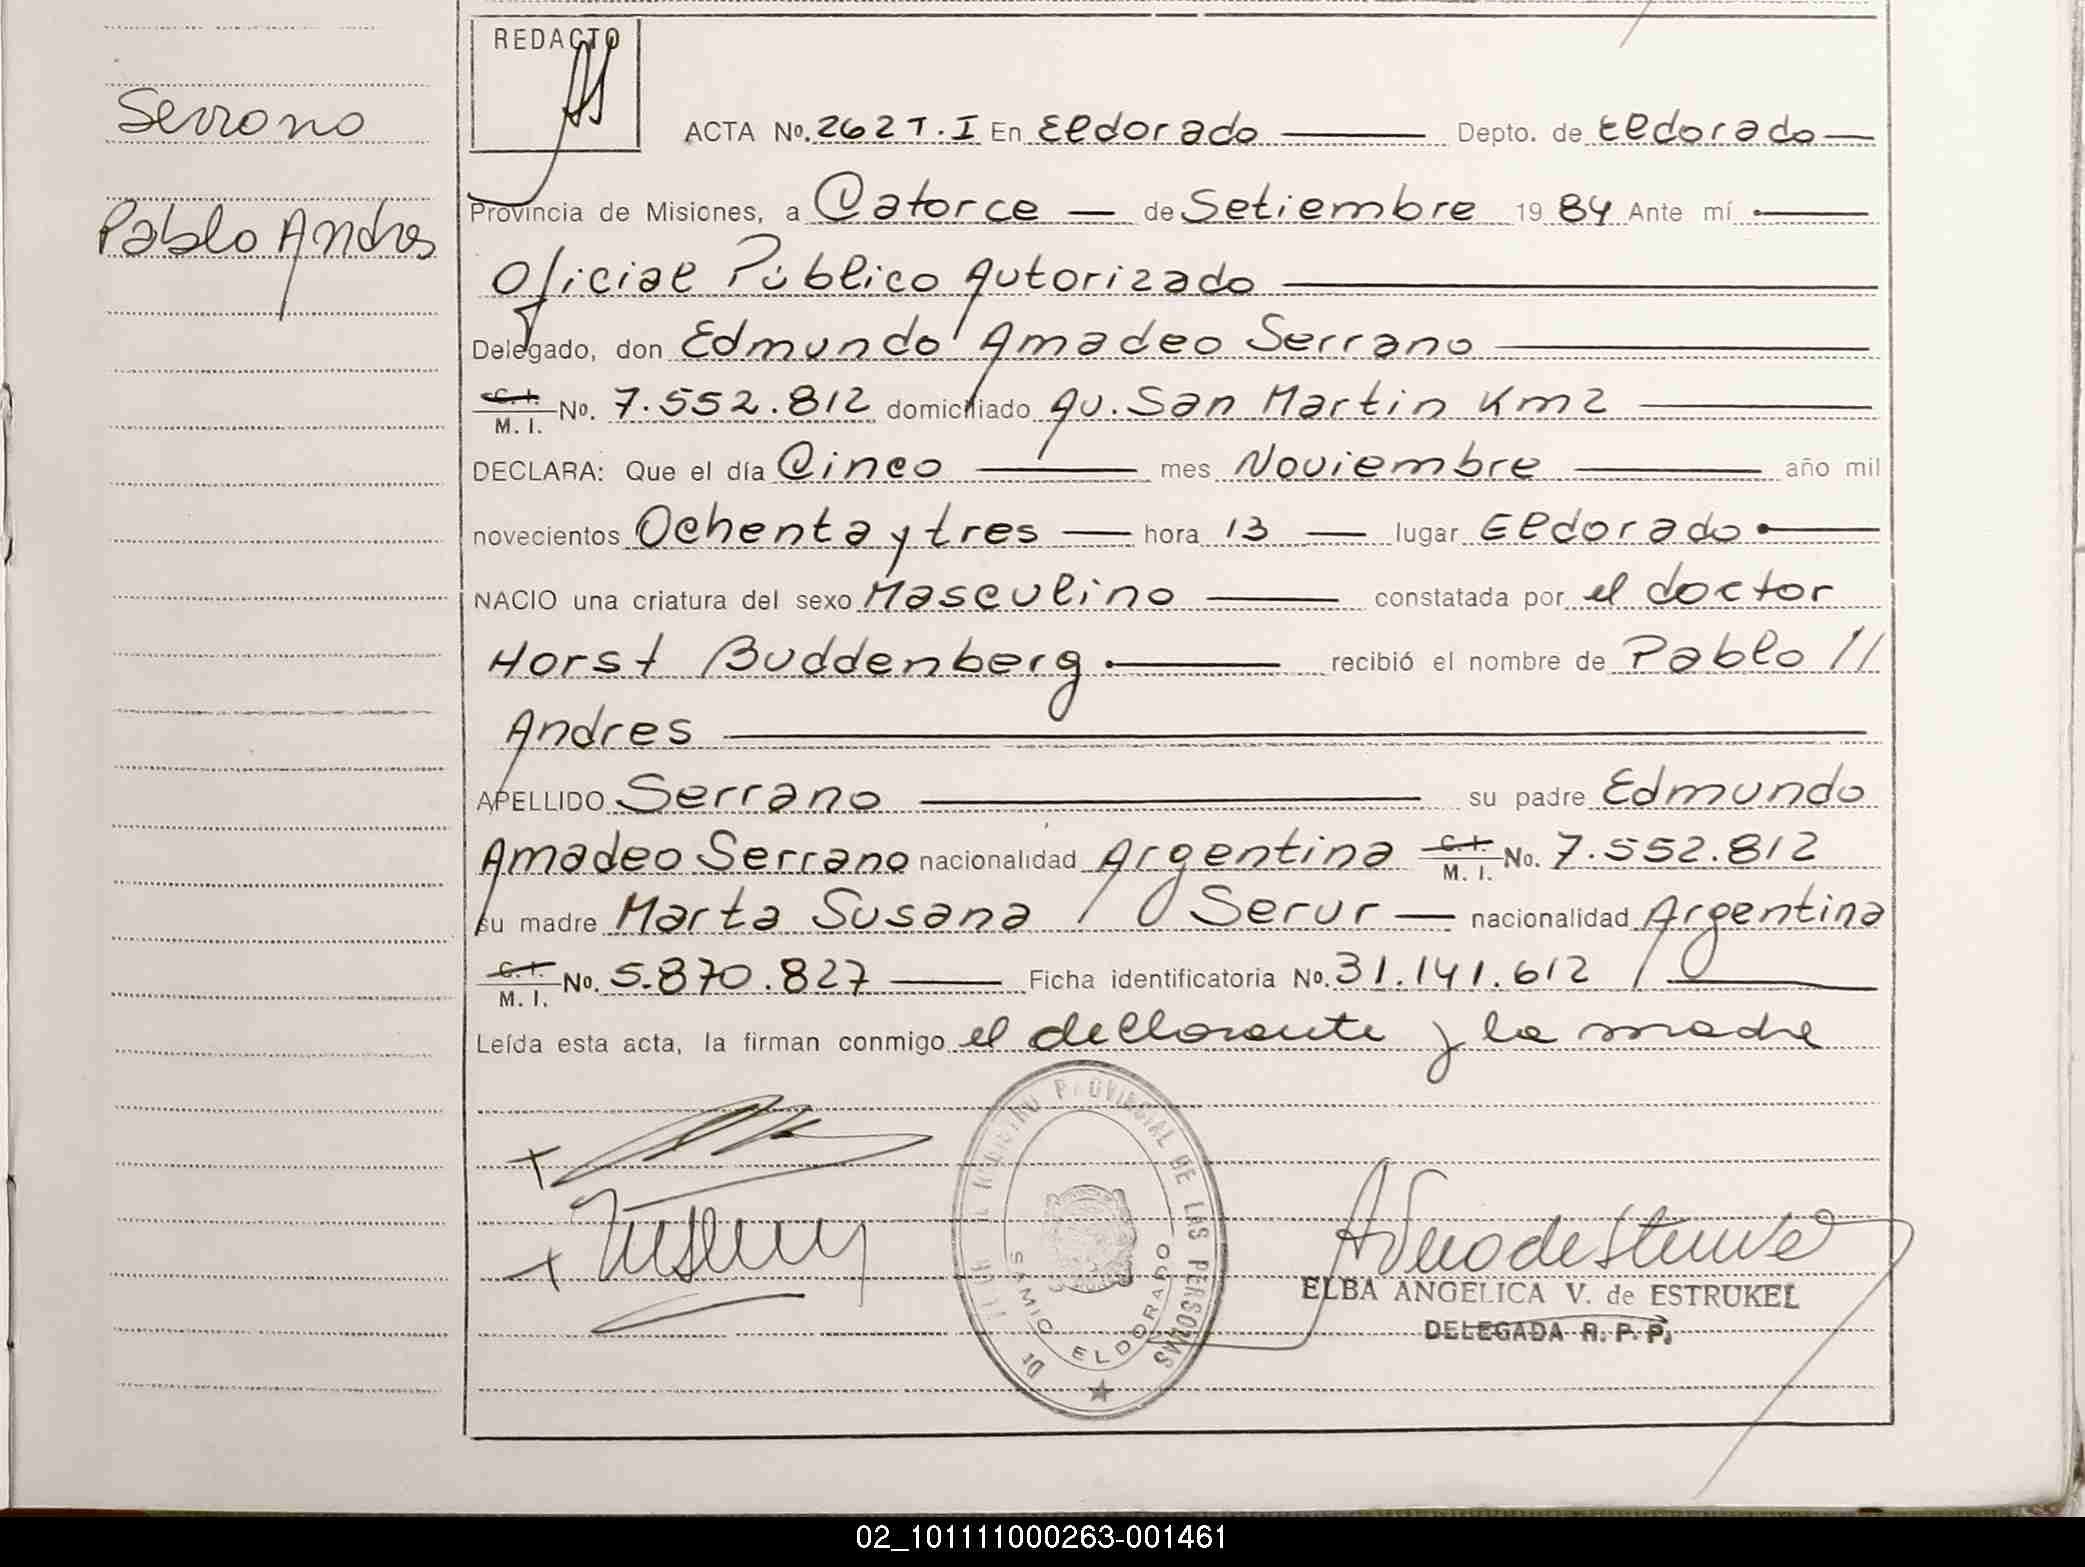 REDACTO
Serrano
Pablo Andres
ACTA No. 262 T. I En Eldorado Depto. de Eldorado
Provincia de Misiones, a Catorce de Setiembre 19 84 Ante mí
Oficial Público Autorizado
Delegado, don Edmundo Amadeo Serrano
C. I. M. I. No. 7.552.812 domiciliado Av. San Martin Km 2
DECLARA: Que el día Cinco mes Noviembre año mil
novecientos Ochenta y tres hora 13 lugar Eldorado
NACIO una criatura del sexo Masculino constatada por el doctor
Horst Buddenberg recibió el nombre de Pablo //
Andres
APELLIDO Serrano su padre Edmundo
Amadeo Serrano nacionalidad Argentina C. I. M. I. No. 7.552.812
su madre Marta Susana Serur nacionalidad Argentina
C. I. M. I. No. 5.870.827 Ficha identificatoria No. 31.141.612
Leída esta acta, la firman conmigo el declarante y la madre
PROVINCIAL DE LAS PERSONAS
ELDORADO
ELBA ANGELICA V. de ESTRUKEL
DELEGADA R. P. P.
02_101111000263-001461